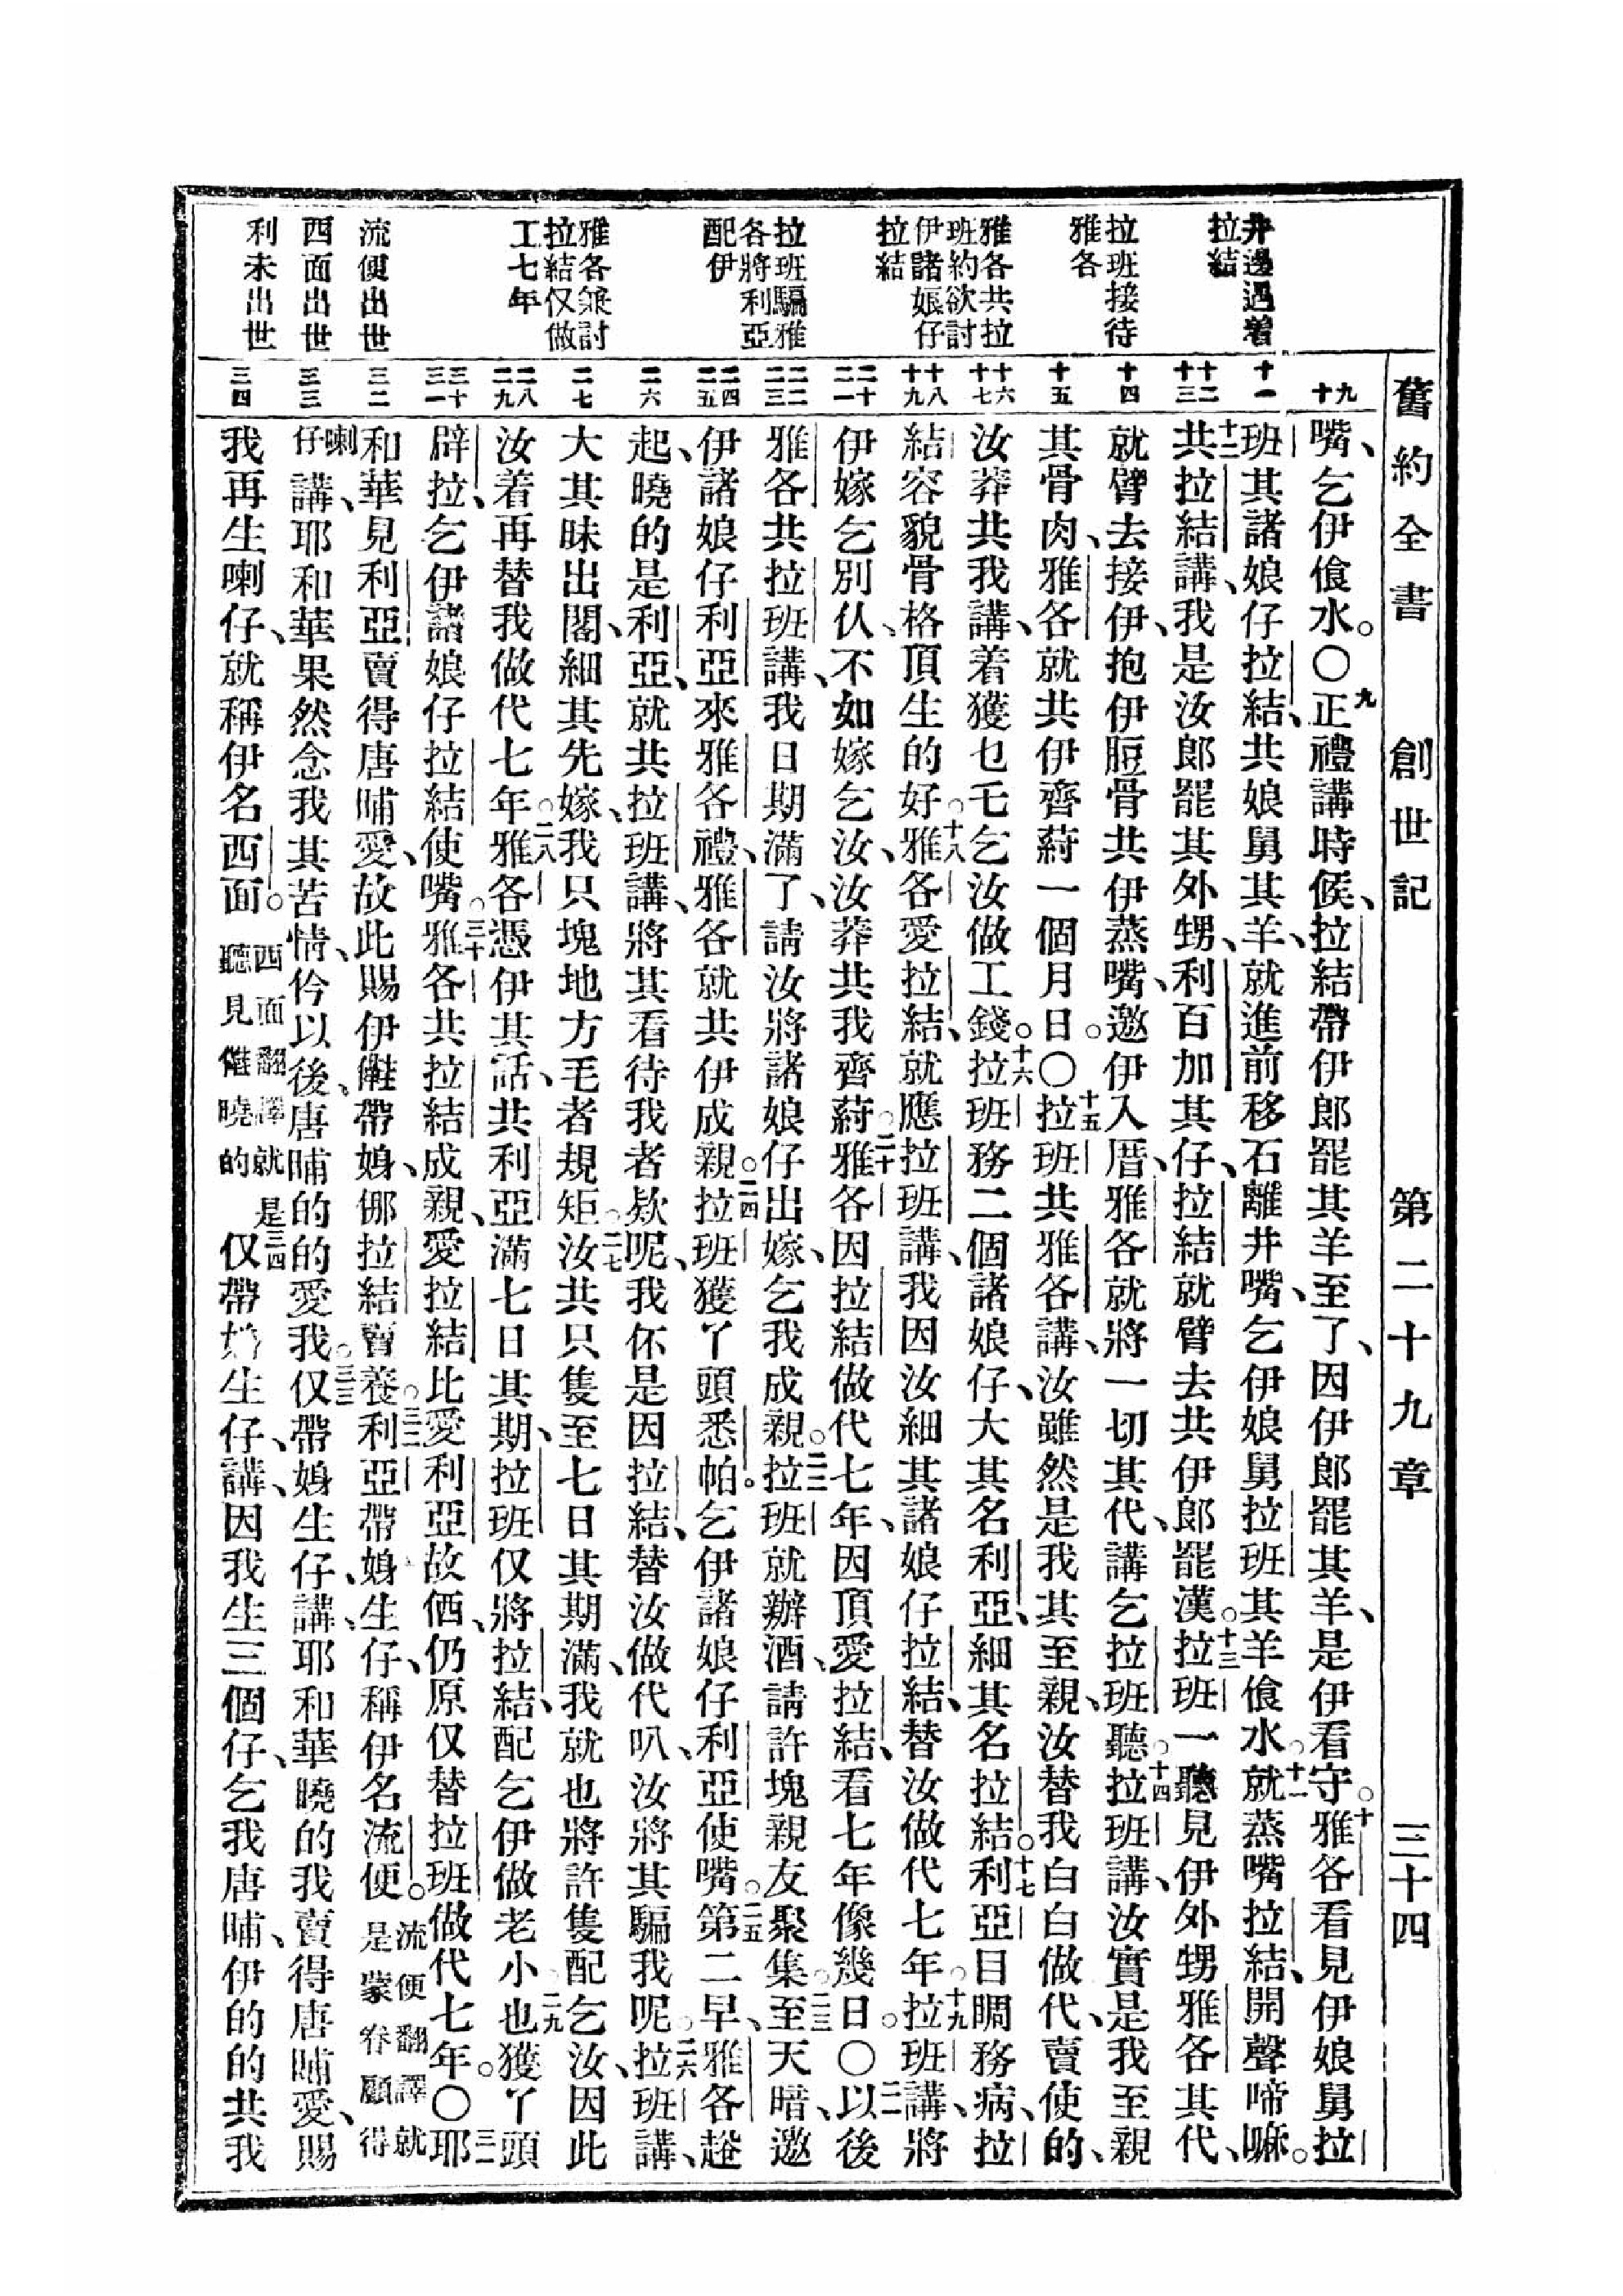 舊約全書 創世記 第二十九章 三十四
井邊遇着
拉結
拉班接待
雅各
雅各共拉
班約欲討
伊諸娘仔
拉結
拉班騙雅
各將利亞
配伊
雅各兼討
拉結仅做
工七年
流便出世
西面出世
利未出世
九 十 十一 十二 十三 十四 十五 十六 十七 十八 十九 二十 二一 二二 二三 二四 二五 二六 二七 二八 二九 三十 三一 三二 三三 三四
嘴、乞伊飲水。〇九正禮講時候、拉結帶伊郎罷其羊至了、因伊郎罷其羊、是伊看守。十雅各看見伊娘舅拉
班其諸娘仔拉結、共娘舅其羊、就進前移石離井嘴、乞伊娘舅拉班其羊飲水。十一就蒸嘴拉結、開聲啼嘛。
十二共拉結講、我是汝郎罷其外甥、利百加其仔、拉結就臂去共伊郎罷漢。十三拉班一聽見伊外甥雅各其代、
就臂去接伊、抱伊脰骨共伊蒸嘴、邀伊入厝、雅各就將一切其代、講乞拉班聽。十四拉班講、汝實是我至親
其骨肉、雅各就共伊齊蒔一個月日。〇十五拉班共雅各講、汝雖然是我其至親、汝替我白白做代、賣使的、
汝莽共我講、着獲乜乇乞汝做工錢。十六拉班務二個諸娘仔、大其名利亞、細其名拉結。十七利亞目睭務病、拉
結容貌骨格頂生的好。十八雅各愛拉結、就應拉班講、我因汝細其諸娘仔拉結、替汝做代七年。十九拉班講、將
伊嫁乞別仈、不如嫁乞汝、汝莽共我齊蒔。二十雅各因拉結做代七年、因頂愛拉結、看七年像幾日。〇二一以後
雅各共拉班講、我日期滿了、請汝將諸娘仔出嫁、乞我成親。二二拉班就辦酒、請許塊親友聚集。二三至天暗、邀
伊諸娘仔利亞來雅各禮、雅各就共伊成親。二四拉班獲丫頭悉帕、乞伊諸娘仔利亞使嘴。二五第二早、雅各趒
起、曉的是利亞、就共拉班講、將其看待我者欵呢、我伓是因拉結、替汝做代叭、汝將其騙我呢。二六拉班講、
大其昧出閣、細其先嫁、我只塊地方毛者規矩。二七汝共只隻至七日其期滿、我就也將許隻配乞汝、因此
汝着再替我做代七年。二八雅各憑伊其話、共利亞滿七日其期、拉班仅將拉結、配乞伊做老小。二九也獲丫頭
辟拉、乞伊諸娘仔拉結使嘴。三十雅各共拉結成親、愛拉結比愛利亞故価、仍原仅替拉班做代七年。〇三一耶
和華見利亞賣得唐晡愛、故此賜伊㑚帶㛎、哪拉結賣養。三二利亞帶㛎生仔、稱伊名流便。流便翻譯就是蒙眷顧得
喇仔講、耶和華果然念我其苦情、仱以後、唐晡的的愛我。三三仅帶㛎生仔、講、耶和華曉的我賣得唐晡愛、賜
我再生喇仔、就稱伊名西面。西面翻譯就是聽見㑚曉的三四仅帶㛎生仔、講、因我生三個仔、乞我唐晡、伊的的共我